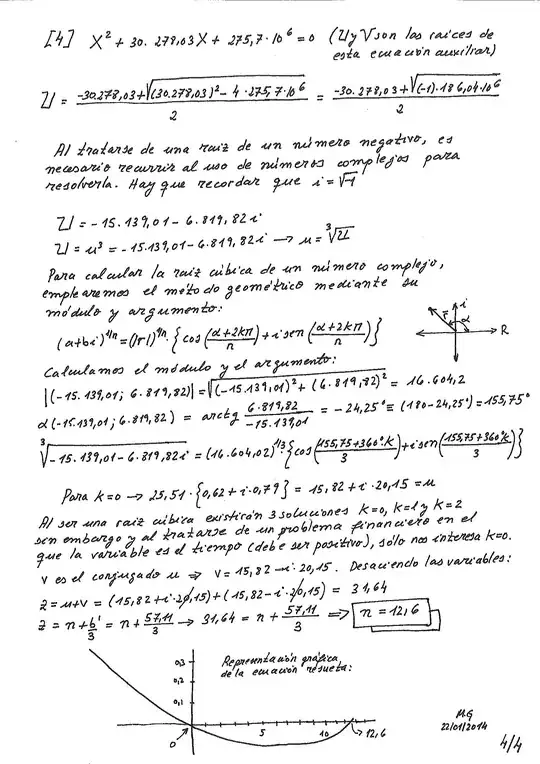 [4] X² + 30.278,03X + 275,7·10⁶ = 0 (U y V son las raíces de
esta ecuación auxiliar)
U = (-30.278,03 + √((30.278,03)² - 4·275,7·10⁶)) / 2 = (-30.278,03 + √((-1)·186,04·10⁶)) / 2
Al tratarse de una raiz de un número negativo, es
necesario recurrir al uso de números complejos para
resolverla. Hay que recordar que i = √-1
U = -15.139,01 - 6.819,82i
U = u³ = -15.139,01 - 6.819,82i → u = ³√U
Para calcular la raiz cúbica de un número complejo,
emplearemos el método geométrico mediante su
módulo y argumento:
(a+bi)^(1/n) = (|r|)^(1/n) · {cos((α+2kπ)/n) + i sen((α+2kπ)/n)}
i
r
α
R
Calculamos el módulo y el argumento:
|(-15.139,01; 6.819,82)| = √((-15.139,01)² + (6.819,82)²) = 16.604,2
α(-15.139,01; 6.819,82) = arctg 6.819,82 / -15.139,01 = -24,25° = (180-24,25°) = 155,75°
³√(-15.139,01 - 6.819,82i) = (16.604,02)^(1/3) {cos((155,75+360°k)/3) + i sen((155,75+360°k)/3)}
Para k=0 → 25,51·{0,62 + i·0,79} = 15,82 + i·20,15 = u
Al ser una raiz cúbica existirán 3 soluciones k=0, k=1 y k=2
sin embargo y al tratarse de un problema financiero en el
que la variable es el tiempo (debe ser positivo), sólo nos interesa k=0.
v es el conjugado u ⇒ v = 15,82 - i·20,15. Desaciendo las variables:
z = u+v = (15,82 + i·20,15) + (15,82 - i·20,15) = 31,64
z = n + b'/3 = n + 57,11/3 → 31,64 = n + 57,11/3 ⇒ n = 12,6
0,3
0,2
0,1
Representación gráfica
de la ecuación resuelta:
0
5
10
12,6
M.G
22/01/2014
4/4